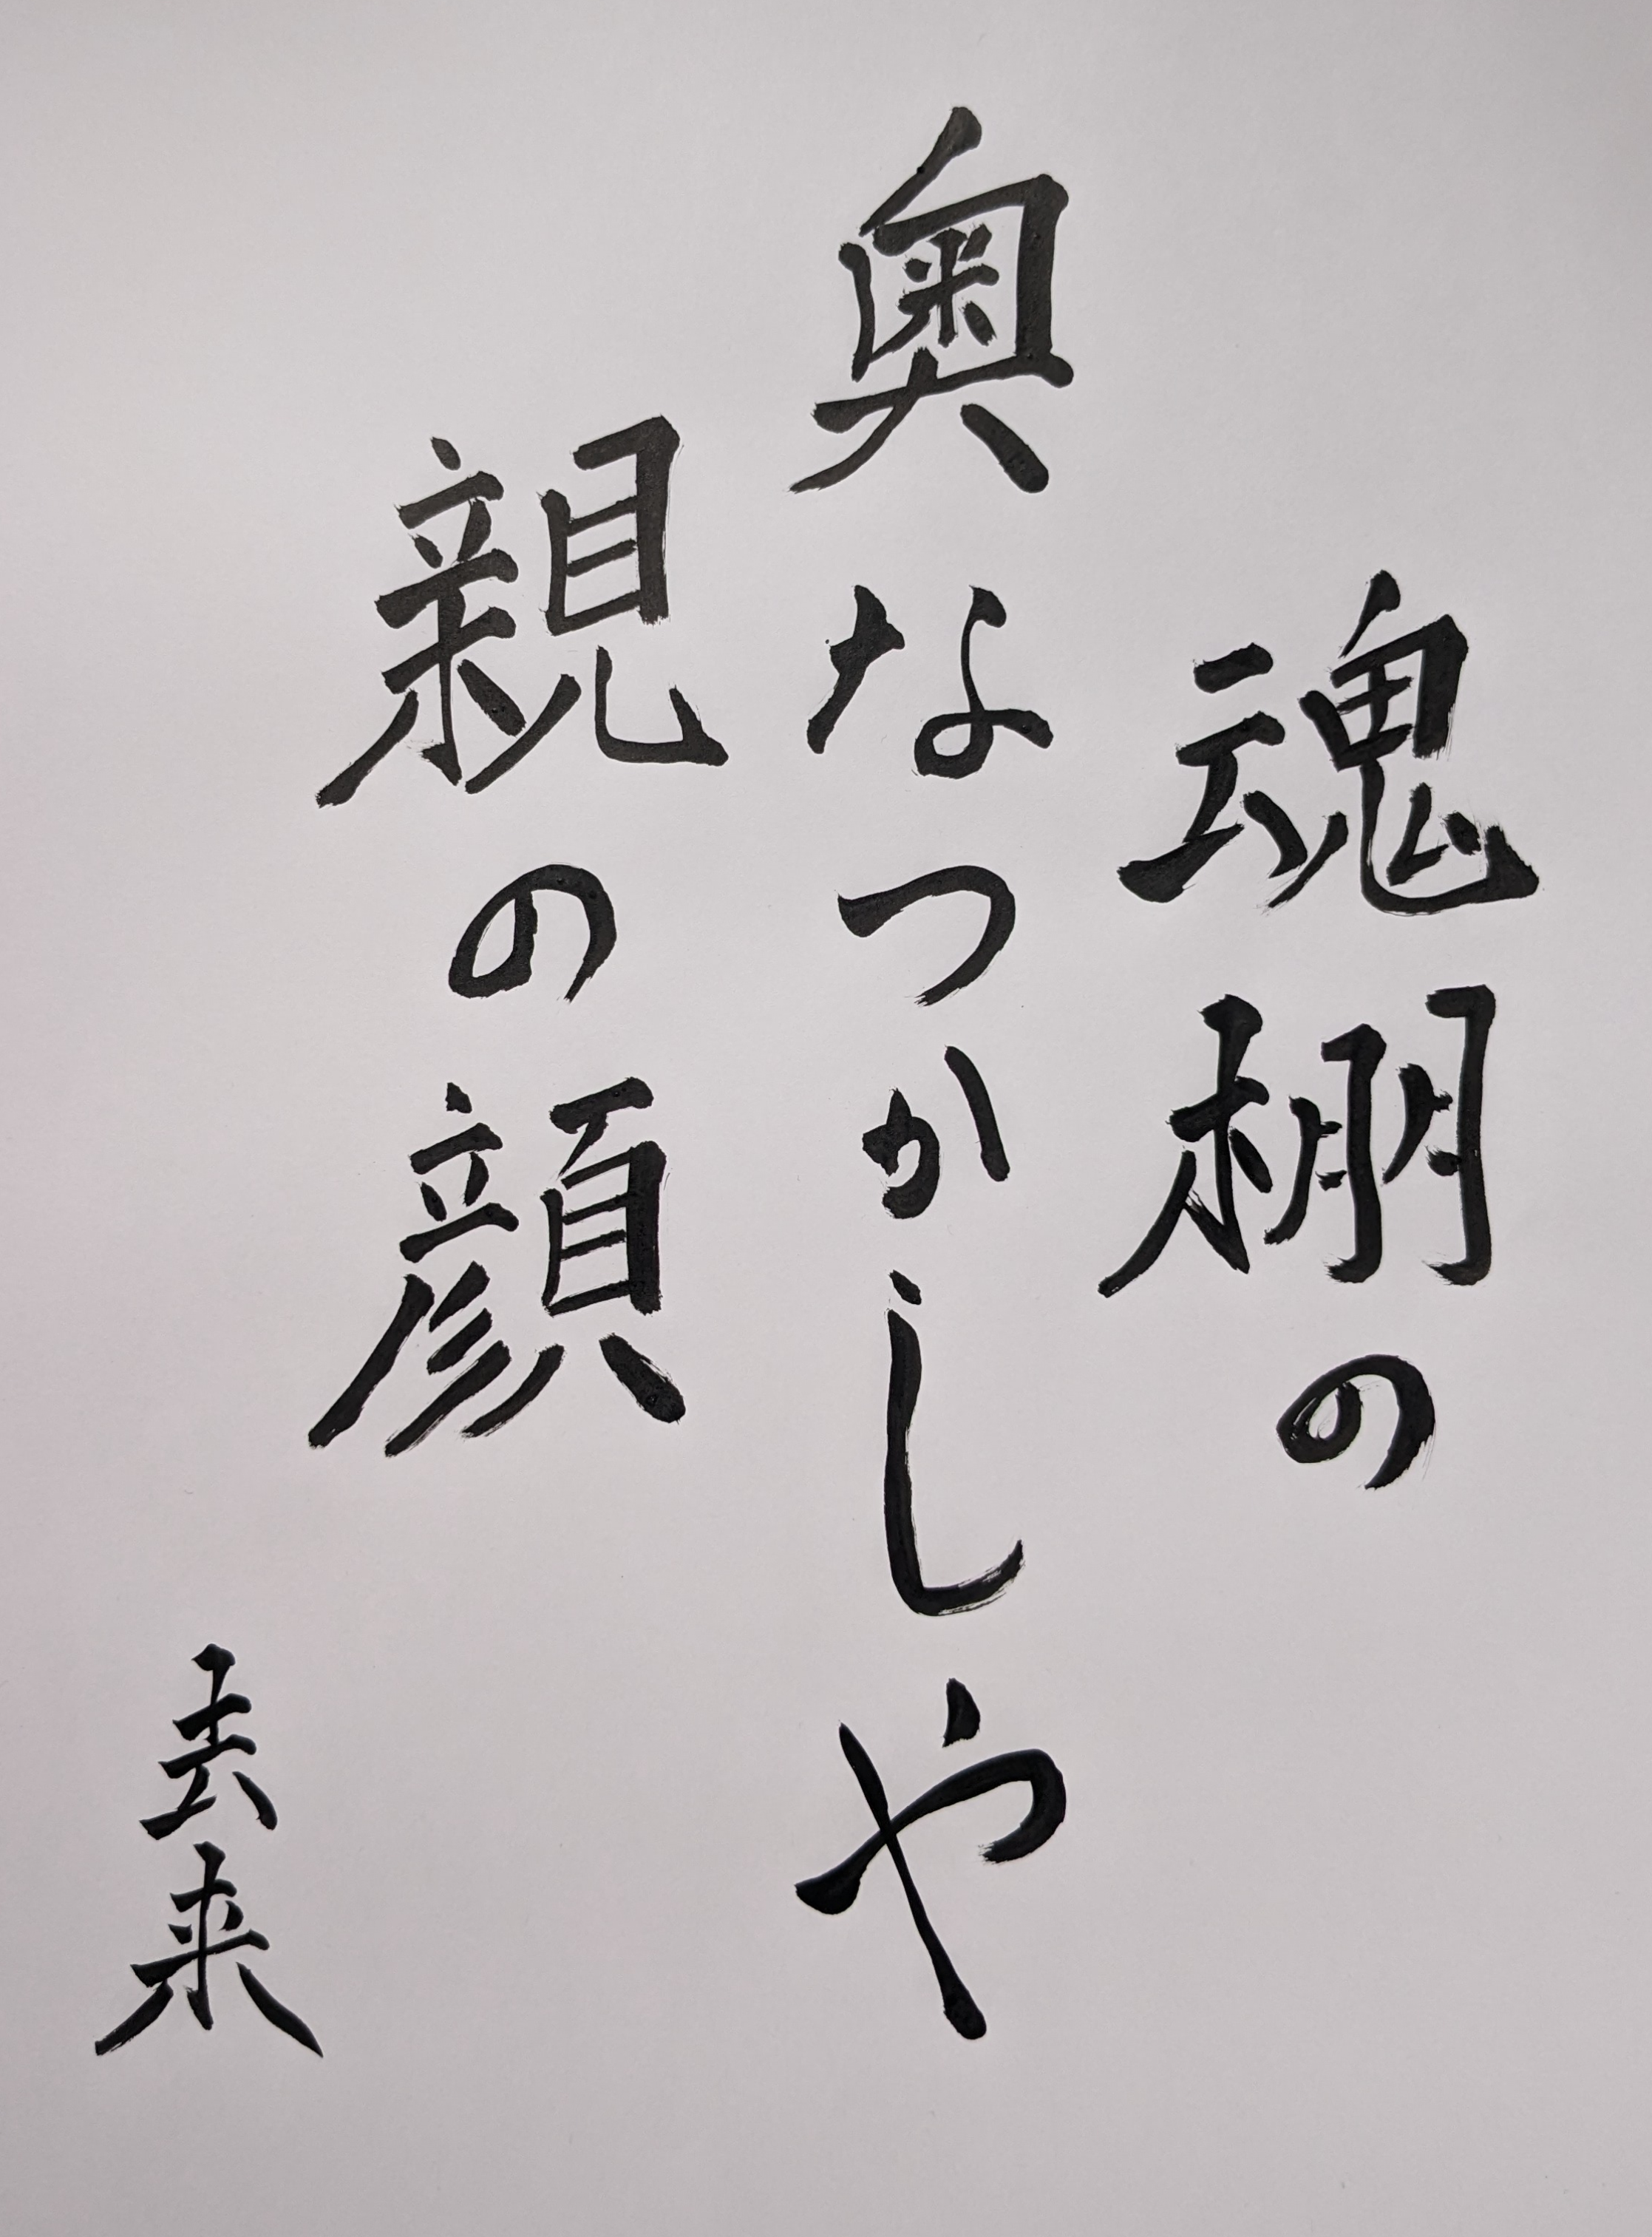 魂棚の
奥なつかしや
親の顔
去来